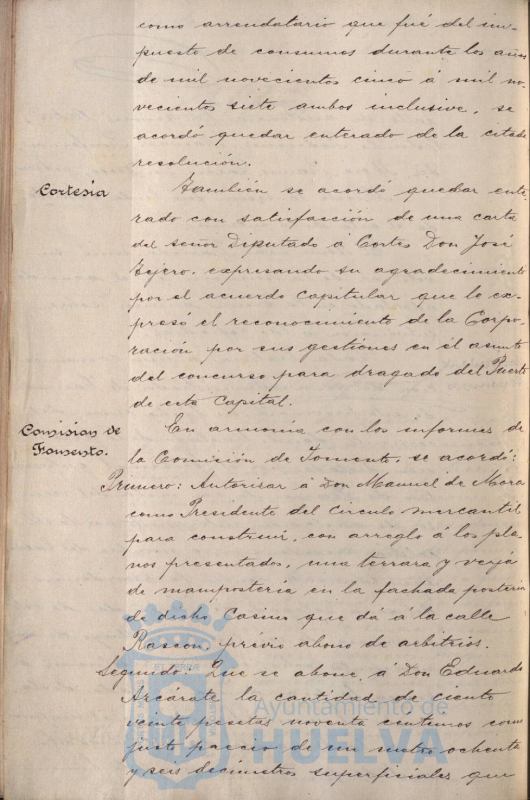 como arrendatario que fué del im-
puesto de consumos durante los años
de mil novecientos cinco á mil no-
vecientos siete ambos inclusive, se
acordó quedar enterado de la citada
resolución.
Cortesía
También se acordó quedar ente-
rado con satisfacción de una carta
del señor Diputado á Cortes Don José
Tejero, expresando su agradecimiento
por el acuerdo capitular que le ex-
presó el reconocimiento de la Corpo-
ración por sus gestiones en el asunto
del concurso para dragado del Puerto
de esta Capital.
Comision de
Fomento.
En armonía con los informes de
la Comisión de Fomento, se acordó:
Primero: Autorisar á Don Manuel de Mora
como Presidente del Circulo mercantil
para construir, con arreglo á los pla-
nos presentados, una terrara y verja
de mampostería en la fachada posterior
de dicho Casino que dá á la calle
Rascon, prévio abono de arbitrios.
Segundo: Que se abone á Don Eduardo
Azcárate la cantidad de ciento
veinte pesetas noventa centimos como
justo precio de un metro ochenta
y seis decimetros superficiales que
Ayuntamiento de
HUELVA